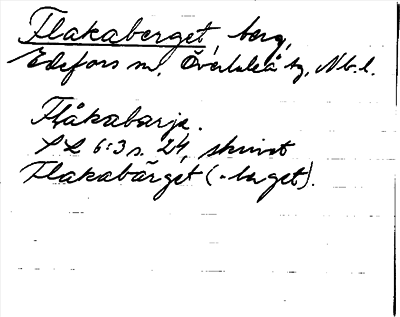 Flakaberget berg,
Edefors sn, Överluleå tg, Nb. l.
Flåkabarje.
SL 6:3 s. 24, skrivet
Flakabärget (-berget).